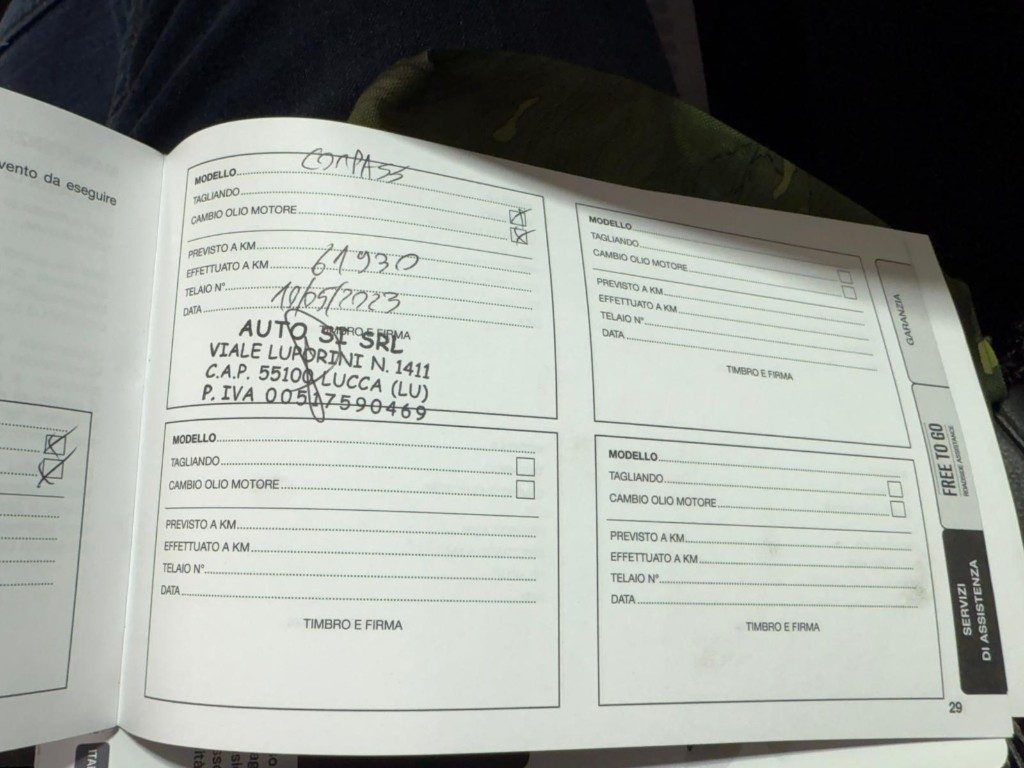 vento da eseguire
MODELLO COMPASS
TAGLIANDO
CAMBIO OLIO MOTORE
PREVISTO A KM
EFFETTUATO A KM 61930
TELAIO N°
DATA 10/05/2023
TIMBRO E FIRMA
AUTO SI SRL
VIALE LUPORINI N. 1411
C.A.P. 55100 LUCCA (LU)
P. IVA 00517590469
MODELLO
TAGLIANDO
CAMBIO OLIO MOTORE
PREVISTO A KM
EFFETTUATO A KM
TELAIO N°
DATA
TIMBRO E FIRMA
MODELLO
TAGLIANDO
CAMBIO OLIO MOTORE
PREVISTO A KM
EFFETTUATO A KM
TELAIO N°
DATA
TIMBRO E FIRMA
MODELLO
TAGLIANDO
CAMBIO OLIO MOTORE
PREVISTO A KM
EFFETTUATO A KM
TELAIO N°
DATA
TIMBRO E FIRMA
GARANZIA
FREE TO GO
ROADSIDE ASSISTANCE
SERVIZI
DI ASSISTENZA
29